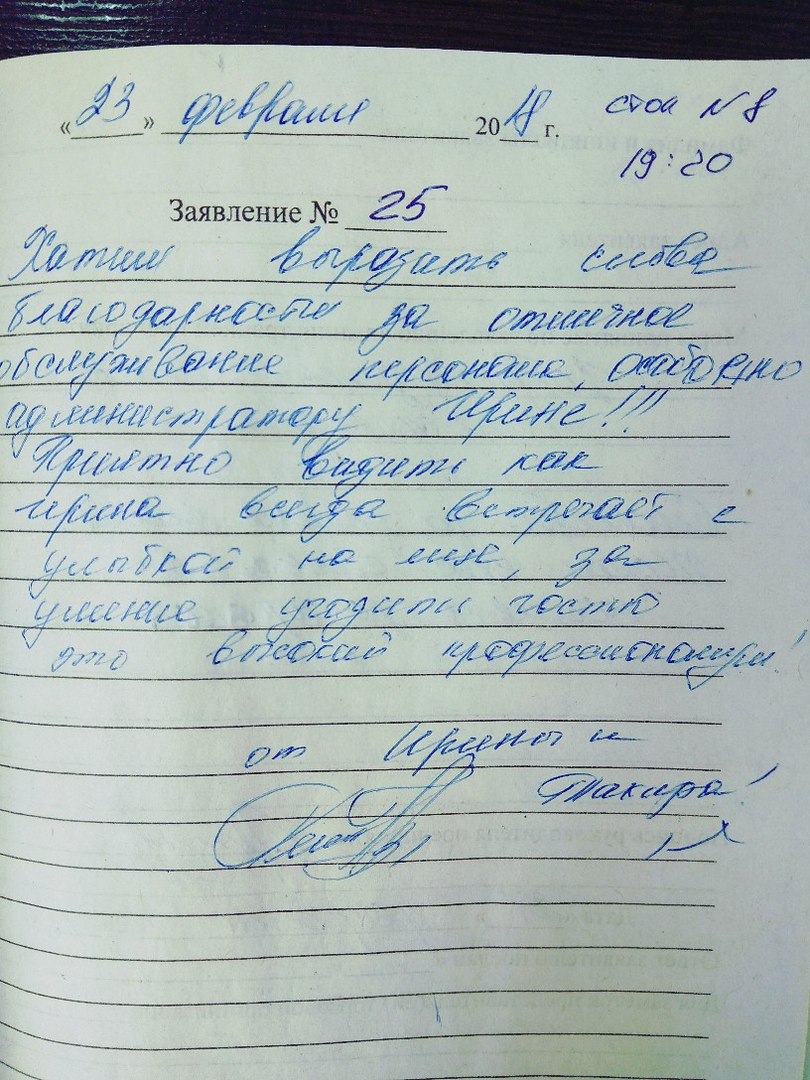 «23» февраля 2018 г. стол N 8
19:20
Заявление № 25
Хотим выразить слова
благодарности за отличное
обслуживание персонала, особенно
администратору Ирине!!!
Приятно видеть как
Ирина всегда встречает с
улыбкой на лице, за
умение угодить гостю
это высокий профессионализм!
от Ирины и
Тахира!